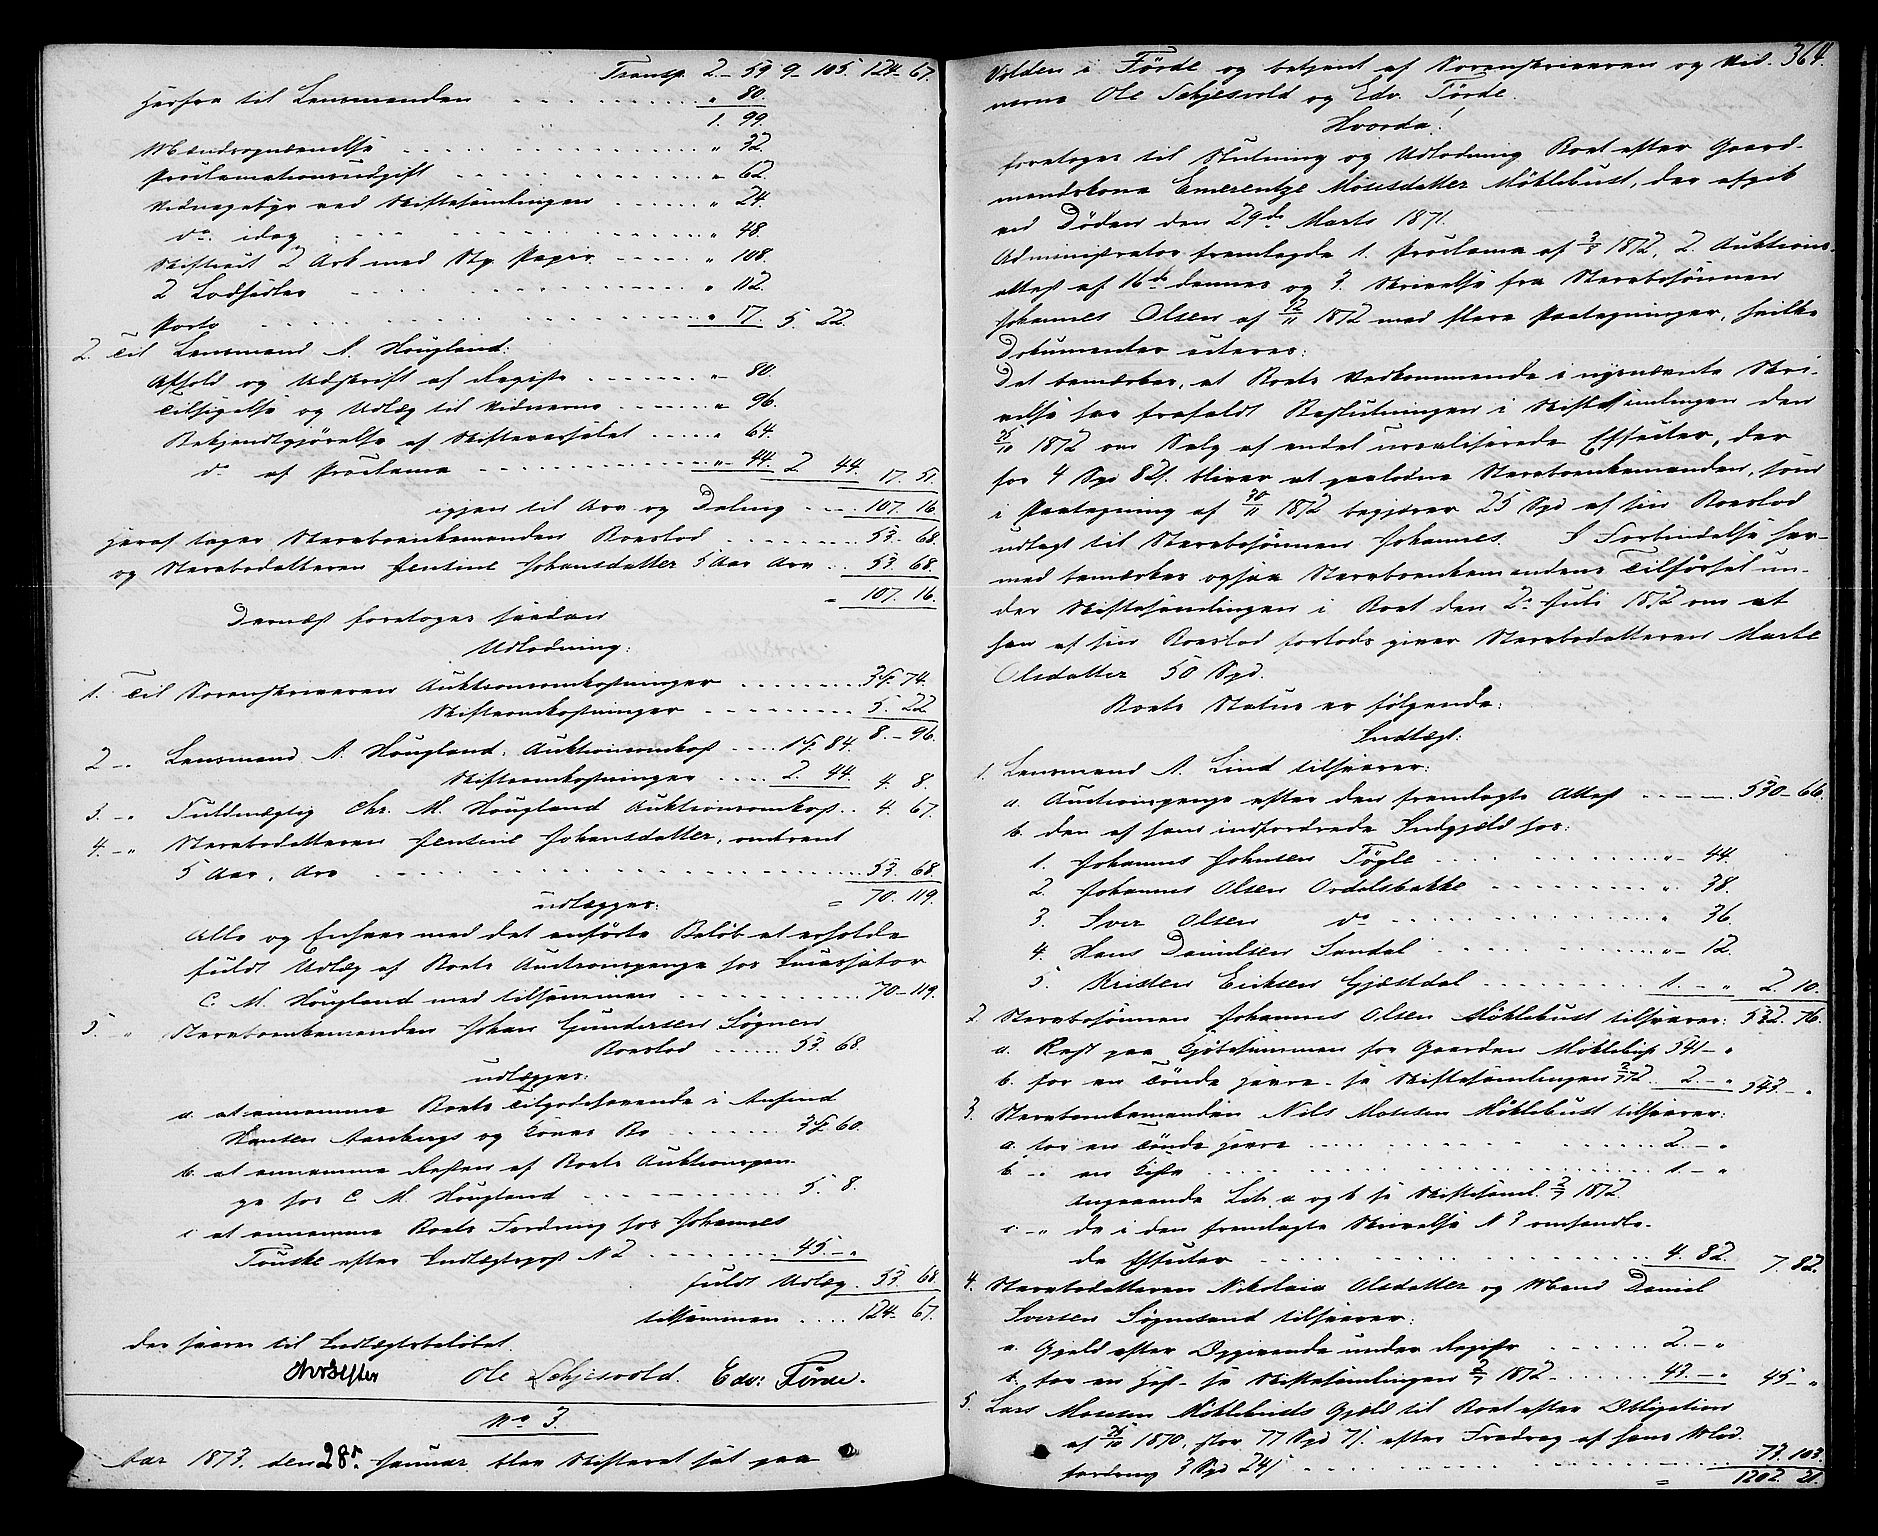 Transp. 2 - 59 9 - 105. 124 - 67.
Herfra til Lensmanden . . . " 80.
1. 99.
Mændsopnævnelse . . . " 32
Proclamationsudgift . . . " 62.
Vidnegebyr ved Skiftesamlingen . . . " 24
do. idag . . . " 48.
Skifteact 2 Ark med Stp. Papir . . . " 108.
2 Lodsedler . . . " 112.
Porto . . . " 17. 5. 22.
2. Til Lensmand A. Hougland:
Afhold og Udskrift af Registr. . . . " 80
Tilsigelse og Udlæg til Vidnerne . . . " 96.
Bekjendtgjörelse af Skifteværfaldet . . . " 64.
do af Proclama . . . " 44. 2 44. 17. 51.
igjen til Arv og Deling . . . 107. 16.
Heraf tager Sterboenkemanden Boeslod . . . 53. 68.
og Sterbodatteren Jensine Johansdatter 5 Aar Arv . . 53. 68.
= 107. 16.
Dernæst foretoges saadan
Udlodning:
1. Til Sorenskriveren Auktionsomkostninger . . . 3 74.
Skifteomkostninger . . . 5. 22
8. - 96.
2 - " Lensmand A. Hougland, Auktionsomkost . . . 1 84.
Skifteomkostninger . . . 2. 44. 4. 8.
3. - " Fuldmægtig Chr. M. Hougland Auktionsomkost . . 4. 67.
4. - " Sterbodatteren Jensine Johansdatter, omtrent
5 Aar, Arv . . . 53. 68.
udlægges: = 70. 119.
Alle og Enhver med det anförte Belöb at erholde
fuldt Udlæg af Boets Auctionspenge hos Incassator
C. M. Hougland med tilsammen . . . 70 - 119.
5. - " Sterboenkemanden Johan Gundersen Sögnen
Boeslod . . . 53. 68.
udlægges:
a. at annamme Boets Tilgodehavende i Anfind
Hansen Aarbergs og Kones Bo . . . 3 60.
b. at annamme Resten af Boets Auktionspen-
ge hos C. M. Hougland . . . 5. 8.
c. at annamme Boets Fordring hos Johannes
Touske efter Indtægtspost N 2 . . . 45. - "
fuldt Udlæg . 53. 68.
tilsammen . . . . 124. 67.
der svarer til Indtægtsbelöbet.
Ole Schjesvold. Edv: Förde.
No 3.
Aar 1873. den 28de Januar blev Skifteret sat paa
364.
Volden i Förde og betjent af Sorenskriveren og Vid-
nerne Ole Schjesvold og Edv. Förde.
Hvorda!
foretoges til Slutning og Udlodning Boet efter Gaard-
mandskone Emerentze Mosesdatter Möklebust, der afgik
ved Döden den 29de Marts 1871.
Administrator fremlagde 1. Proclama af 3/7 1872, 2. Auktions-
attest af 16de dennes og 3. Skrivelse fra Sterbosönnen
Johannes Olsen af 12/11 1872 med flere Paategninger, hvilke
Dokumenter citeres:
Det bemærkes, at Boets Vedkommende i nysnævnte Skri-
velse har frafaldt Beslutningen i Skiftesamlingen den
25/10 1872 om Salg af endel urealiserede Effecter, der
for 4 Spd 82 s. bliver at paalodne Sterboenkemanden, som
i Paategning af 30/11 1872 begjærer 25 Spd af sin Boeslod
udlagt til Sterbosönnen Johannes. I Forbindelse her-
med bemærkes ogsaa Sterboenkemandens Tilförsel un-
der Skiftesamlingen i Boet den 2. Juli 1872 om at
han af sin Boeslod forlods giver Sterbodatteren Marte
Olsdatter 50 Spd.
Boets Status er fölgende:
Indtægt:
1. Lensmand A. Lind tilsvarer:
a. Auctionspenge efter den fremlagte Attest . . . 530 - 66.
b. den af ham indfordrede Indgjæld hos:
1. Johannes Johnsen Fögle . . . " - 44.
2. Johannes Olsen Ordelsbakke . . . " 38.
3. Iver Olsen do . . . " 36
4. Hans Danielsen Sandal . . . " - 12.
5. Kristen Eriksen Gjæstdal . . . 1. - " 2. 10.
2. Sterbosönnen Johannes Olsen Möklebust tilsvarer: 532. 76.
a. Rest paa Kjöbesummen for Gaarden Möklebust 541 - "
b. for en Tönde Havre - se Skiftesamlingen 2/7 72. 2. - " 543. - "
3. Sterboenkemanden Nils Mosesen Möklebust tilsvarer:
a. for en Tönde Havre . . . 2. - "
b. - " en Kiste . . . 1 - "
angaaende Litr. a og b se Skiftesaml. 2/7 1872.
c. - " de i den fremlagte Skrivelse N 3 omhandle-
de Effecter . . . 4. 82. 7. 82.
4. Sterbodatteren Nikolaia Olsdatter og Mand Daniel
Iversen Sögnesand tilsvarer:
a. Gjæld efter Opgivende under Registr . . . 2. - "
b. for en Hest - se Skiftesamlingen 2/7 1872 . . . 43. - " 45 - "
5. Lars Mosesen Möklebusts Gjæld til Boet efter Obligation
af 25/10 1870, stor 77 Spd 7 s. efter Fradrag af hans Mod-
fordring 3 Spd 24 s . . . 73. 103.
= 1202. 31.